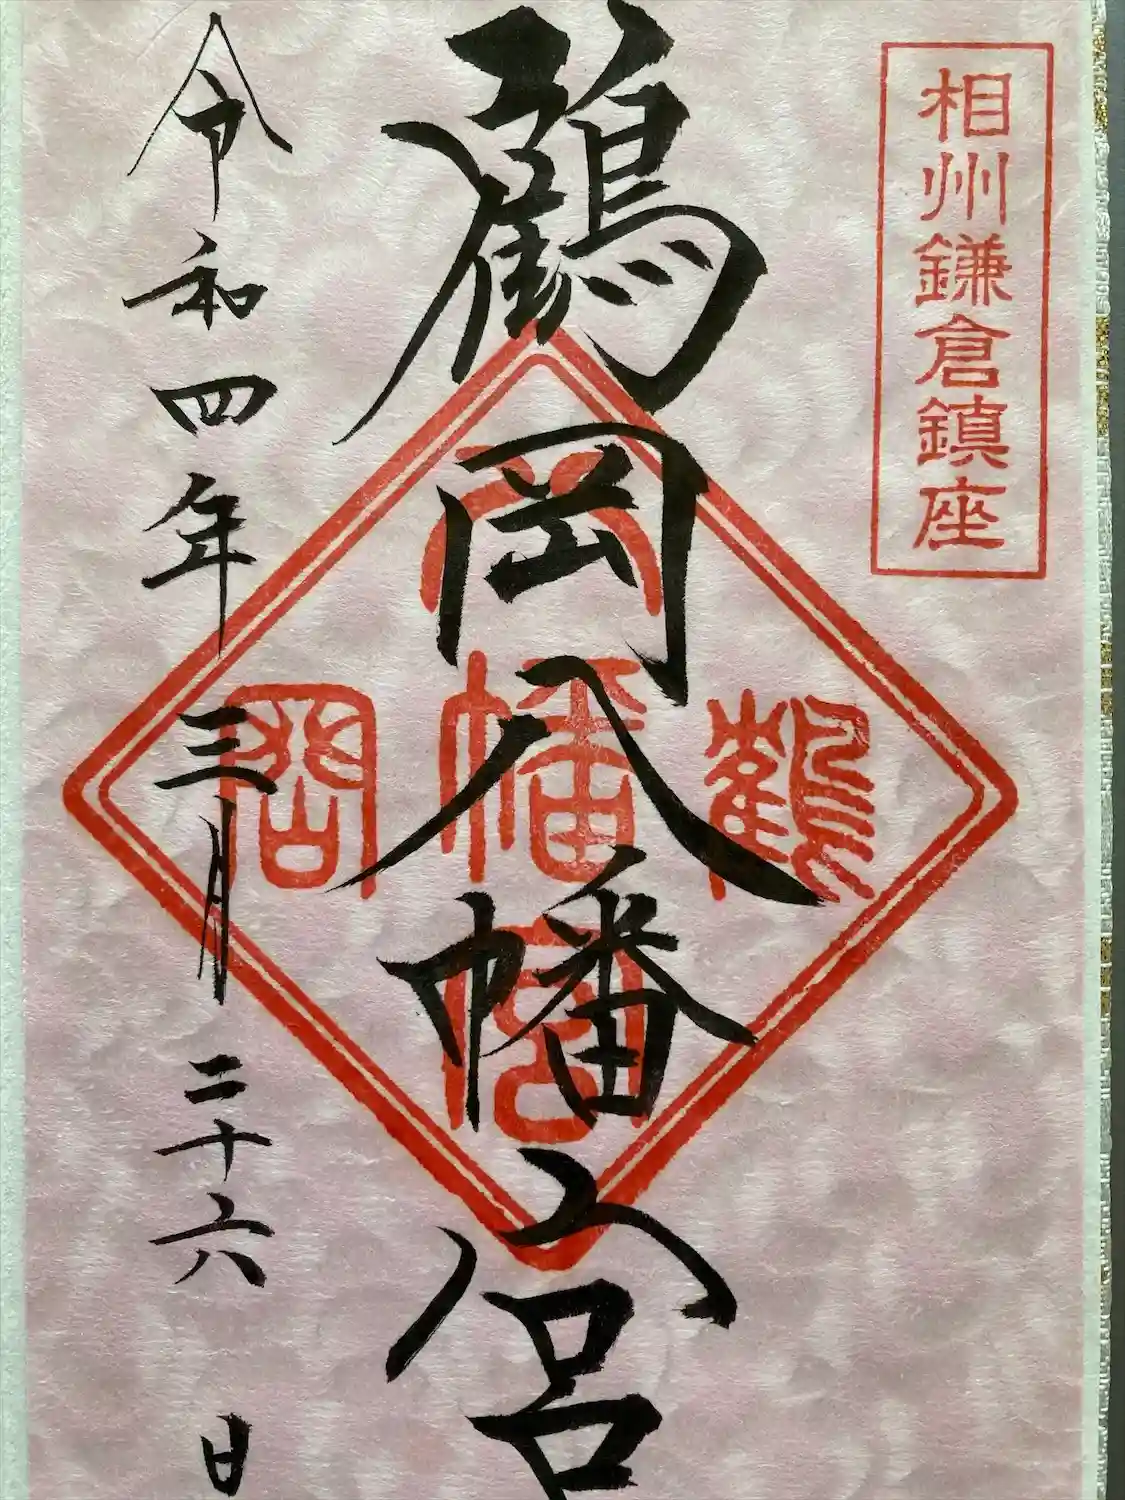 相州鎌倉鎮座
鶴岡八幡宮
鶴岡八幡宮
令和四年三月二十六日